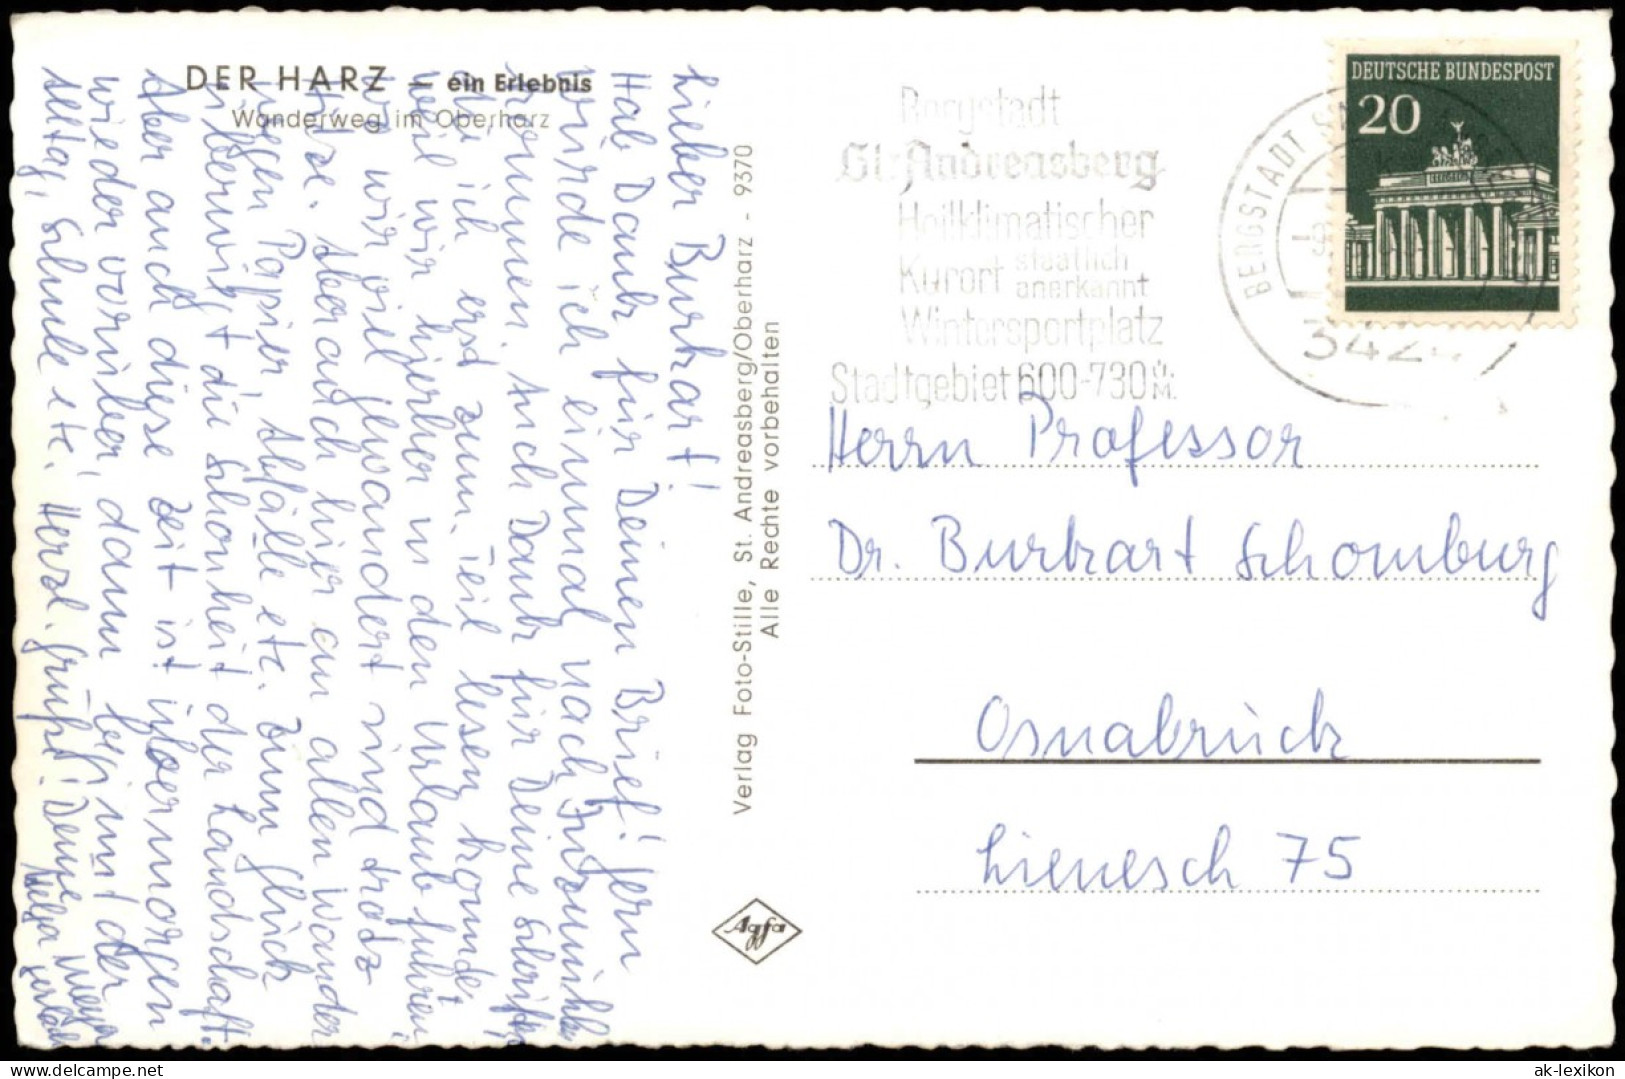 DER HARZ – ein Erlebnis
Wanderweg im Oberharz
Lieber Burkart!
Hab Dank für Deinen Brief! Gern
würde ich einmal nach
kommen. Auch Dank für Deine
die ich erst zum Teil lesen konnte,
weil wir hierher in den Urlaub fuhren,
wo wir viel gewandert sind trotz
Hitze. Aber auch hier an allen Wander
wegen Papier, Abfälle etc. Zum Glück
überwiegt die Schönheit der Landschaft.
Aber auch diese Zeit ist übermorgen
wieder vorüber, dann beginnt der
Alltag, Schule etc. Herzl. grüßt Deine
Helga Meyer
Verlag Foto-Stille, St. Andreasberg/Oberharz - 9370
Alle Rechte vorbehalten
Agfa
Bergstadt
St. Andreasberg
Heilklimatischer
Kurort staatlich
anerkannt
Wintersportplatz
Stadtgebiet 600-730 ü.M.
BERGSTADT
3424
DEUTSCHE BUNDESPOST
20
Herrn Professor
Dr. Burkart Schomburg
Osnabrück
Lienesch 75
ak-lexikon